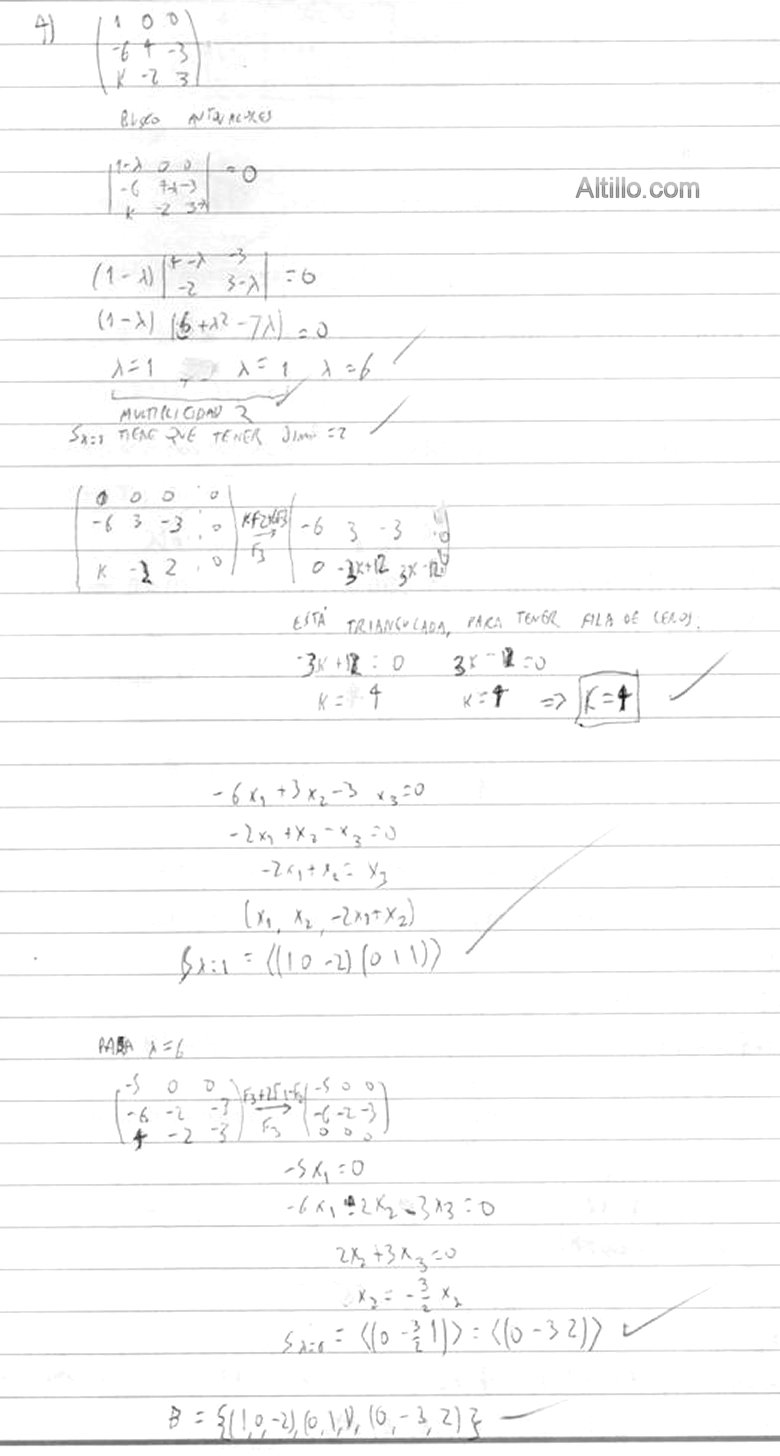 4) ( 1 0 0
-6 4 -3
K -2 3 )
BUSCO AUTOVALORES
| 1-λ 0 0
-6 4-λ -3 = 0
K -2 3-λ |
Altillo.com
(1-λ) | 4-λ -3
-2 3-λ | = 0
(1-λ) (6+λ²-7λ) = 0
λ=1 λ=1 λ=6
MULTIPLICIDAD 2
Sλ=1 TIENE QUE TENER DIM =2
( 0 0 0 : 0
-6 3 -3 : 0
K -2 2 : 0 ) F3 ( -6 3 -3 : 0
0 -3K+12 3K-12 )
ESTÁ TRIANGULADA, PARA TENER FILA DE CEROS.
-3K+12=0 3K-12=0
K= 4 K=4 => K=4
-6x₁+3x₂-3 x₃=0
-2x₁+x₂-x₃=0
-2x₁+x₂= x₃
(x₁, x₂, -2x₁+x₂)
Sλ=1 = ⟨(1 0 -2) (0 1 1)⟩
PARA λ=6
( -5 0 0
-6 -2 -3
4 -2 -3 ) F3+2F1-F2 → F3 ( -5 0 0
-6 -2 -3
0 0 0 )
-5x₁=0
-6x₁-2x₂-3x₃=0
2x₂+3x₃=0
x₂=-3/2 x₂
Sλ=6 = ⟨(0 -3/2 1)⟩ = ⟨(0 -3 2)⟩
B = {(1,0,-2),(0,1,1),(0,-3,2)}